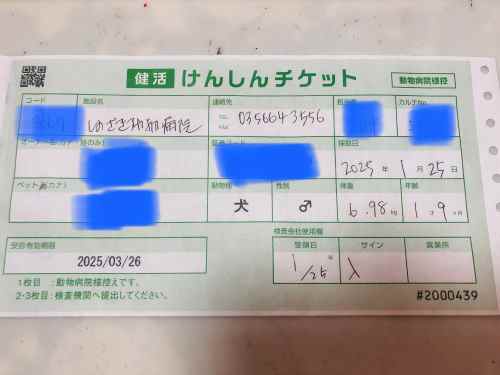 健活 けんしんチケット 動物病院様控
コード 施設名 連絡先 担当者 カルテNo.
しのざき動物病院 TEL 0356643556
FAX
オーナー名(カナ) 姓のみ 採取日
2025年 1月 25日
ペット名(カナ) 動物種 性別 体重 年齢
犬 ♂ 6.98kg 1才9ヶ月
受診有効期限 検査会社使用欄
2025/03/26 受領日 サイン 営業所
1/25
1枚目 :動物病院様控えです。
2・3枚目:検査機関へ提出してください。
#2000439